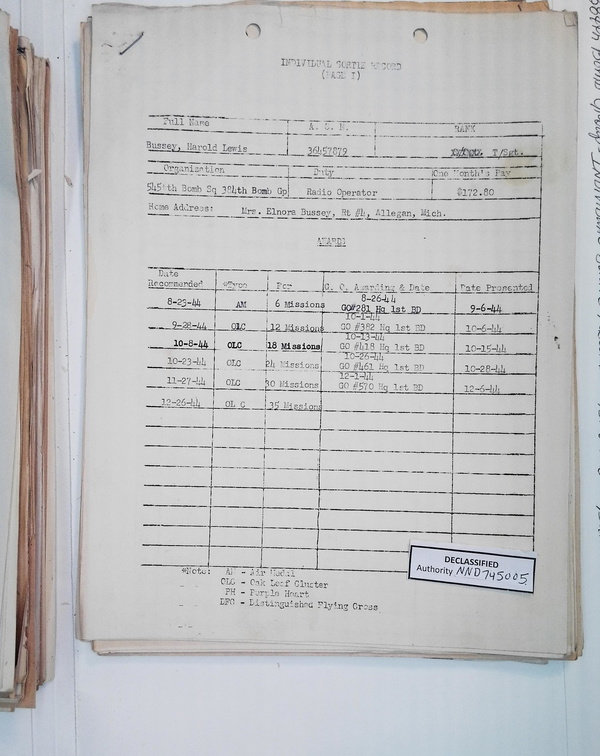 INDIVIDUAL SORTIE RECORD
(PAGE I)
Full Name A. S. N. RANK
Bussey, Harold Lewis 36457879 T/Sgt.
Organization Duty One Month's Pay
545th Bomb Sq 384th Bomb Gp Radio Operator $172.80
Home Address: Mrs. Elnora Bussey, Rt #4, Allegan, Mich.
AWARDS
Date
Recommended *Type For G. O. Awarding & Date Date Presented
8-26-44
8-23-44 AM 6 Missions GO#281 Hq 1st BD 9-6-44
10-1-44
9-28-44 OLC 12 Missions GO #382 Hq 1st BD 10-6-44
10-13-44
10-8-44 OLC 18 Missions GO #418 Hq 1st BD 10-15-44
10-26-44
10-23-44 OLC 24 Missions GO #461 Hq 1st BD 10-28-44
12-1-44
11-27-44 OLC 30 Missions GO #570 Hq 1st BD 12-6-44
12-26-44 OL C 35 Missions
*Note: AM - Air Medal
OLC - Oak Leaf Cluster
PH - Purple Heart
DFC - Distinguished Flying Cross
DECLASSIFIED
Authority NND745005